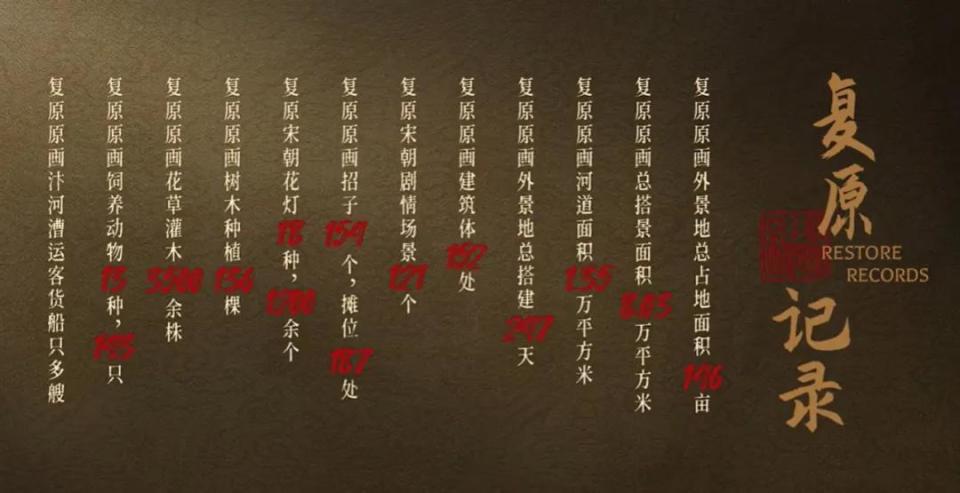 复原记录
RESTORE
RECORDS
复原原画外景地总占地面积196亩
复原原画总搭景面积8.05万平方米
复原原画河道面积1.35万平方米
复原原画外景地总搭建297天
复原原画建筑体152处
复原宋朝剧情场景121个
复原原画招子159个，摊位187处
复原宋朝花灯18种，1200余个
复原原画树木种植156棵
复原原画花草灌木3500余株
复原原画饲养动物13种，只
复原原画汴河漕运客货船只多艘